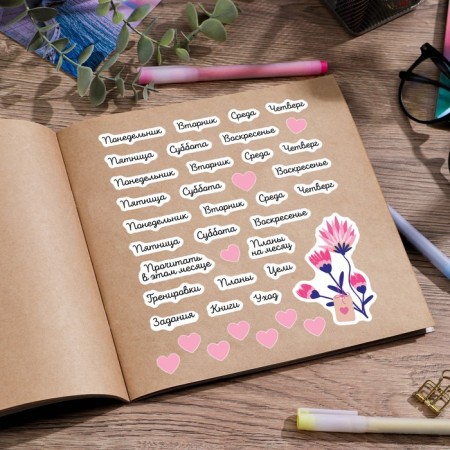 Понедельник Вторник Среда Четверг
Пятница Суббота Воскресенье
Понедельник Вторник Среда Четверг
Пятница Суббота Воскресенье
Понедельник Вторник Среда Четверг
Пятница Суббота Воскресенье
Прочитать
в этом месяце
Планы
на месяц
Тренировки Планы Цели
Задания Книги Уход